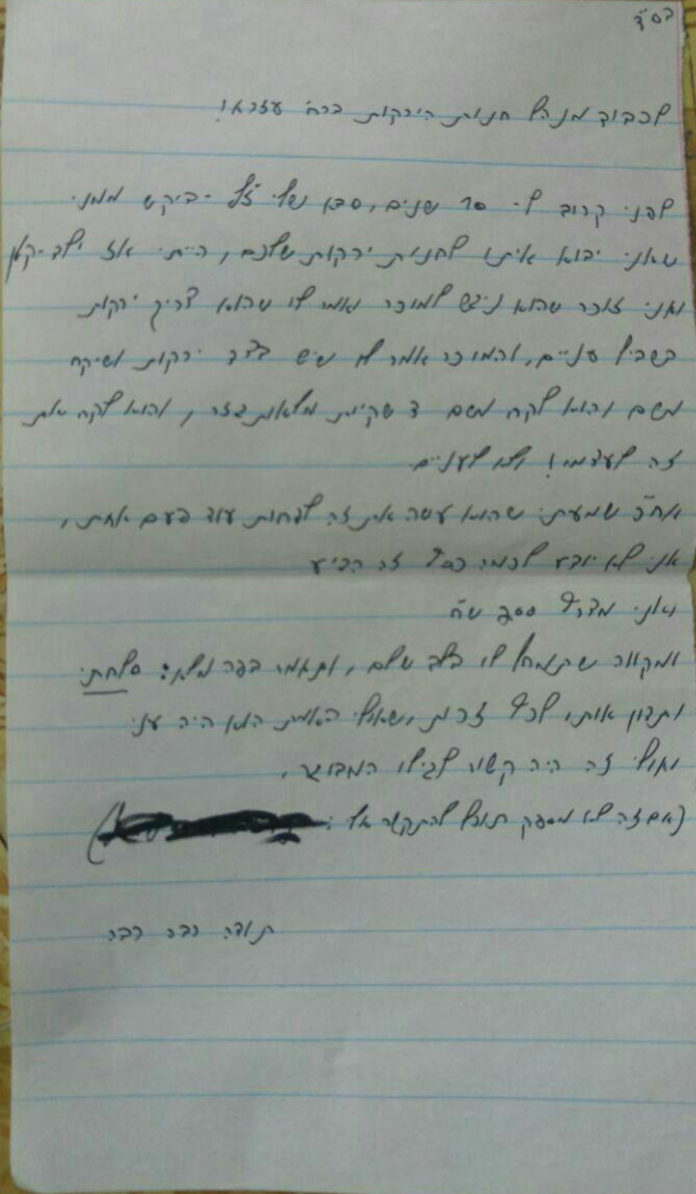 בס"ד
לכבוד מנהל חנות הירקות ברח' עזרא!
לפני קרוב ל- 10 שנים, סבא שלי ז"ל - ביקש ממני
שאני יבוא איתו לחנות ירקות שלכם, הייתי אז ילד קטן
ואני זוכר שהוא ניגש למוכר ואמר לו שהוא צריך ירקות
בשביל עניים, והמוכר אמר לו שיש בצד ירקות ושיקח
משם והוא לקח משם 3 שקיות מלאות גזר, והוא לקח את
זה לעצמו! ולא לעניים
אח"כ שמעתי שהוא עשה את זה לפחות עוד פעם אחת,
אני לא יודע לכמה כסף זה הגיע
ואני מצרף 200 ש"ח
ומקווה שתמחל לו בלב שלם, ותאמר בפה מלא: סלחתי
ותדון אותו לכף זכות, שאולי באמת הוא היה עני
ואולי זה היה קשור לגילו המבוגר.
(אם זה לא מספק תוכל להתקשר אלי:
תודה רבה רבה